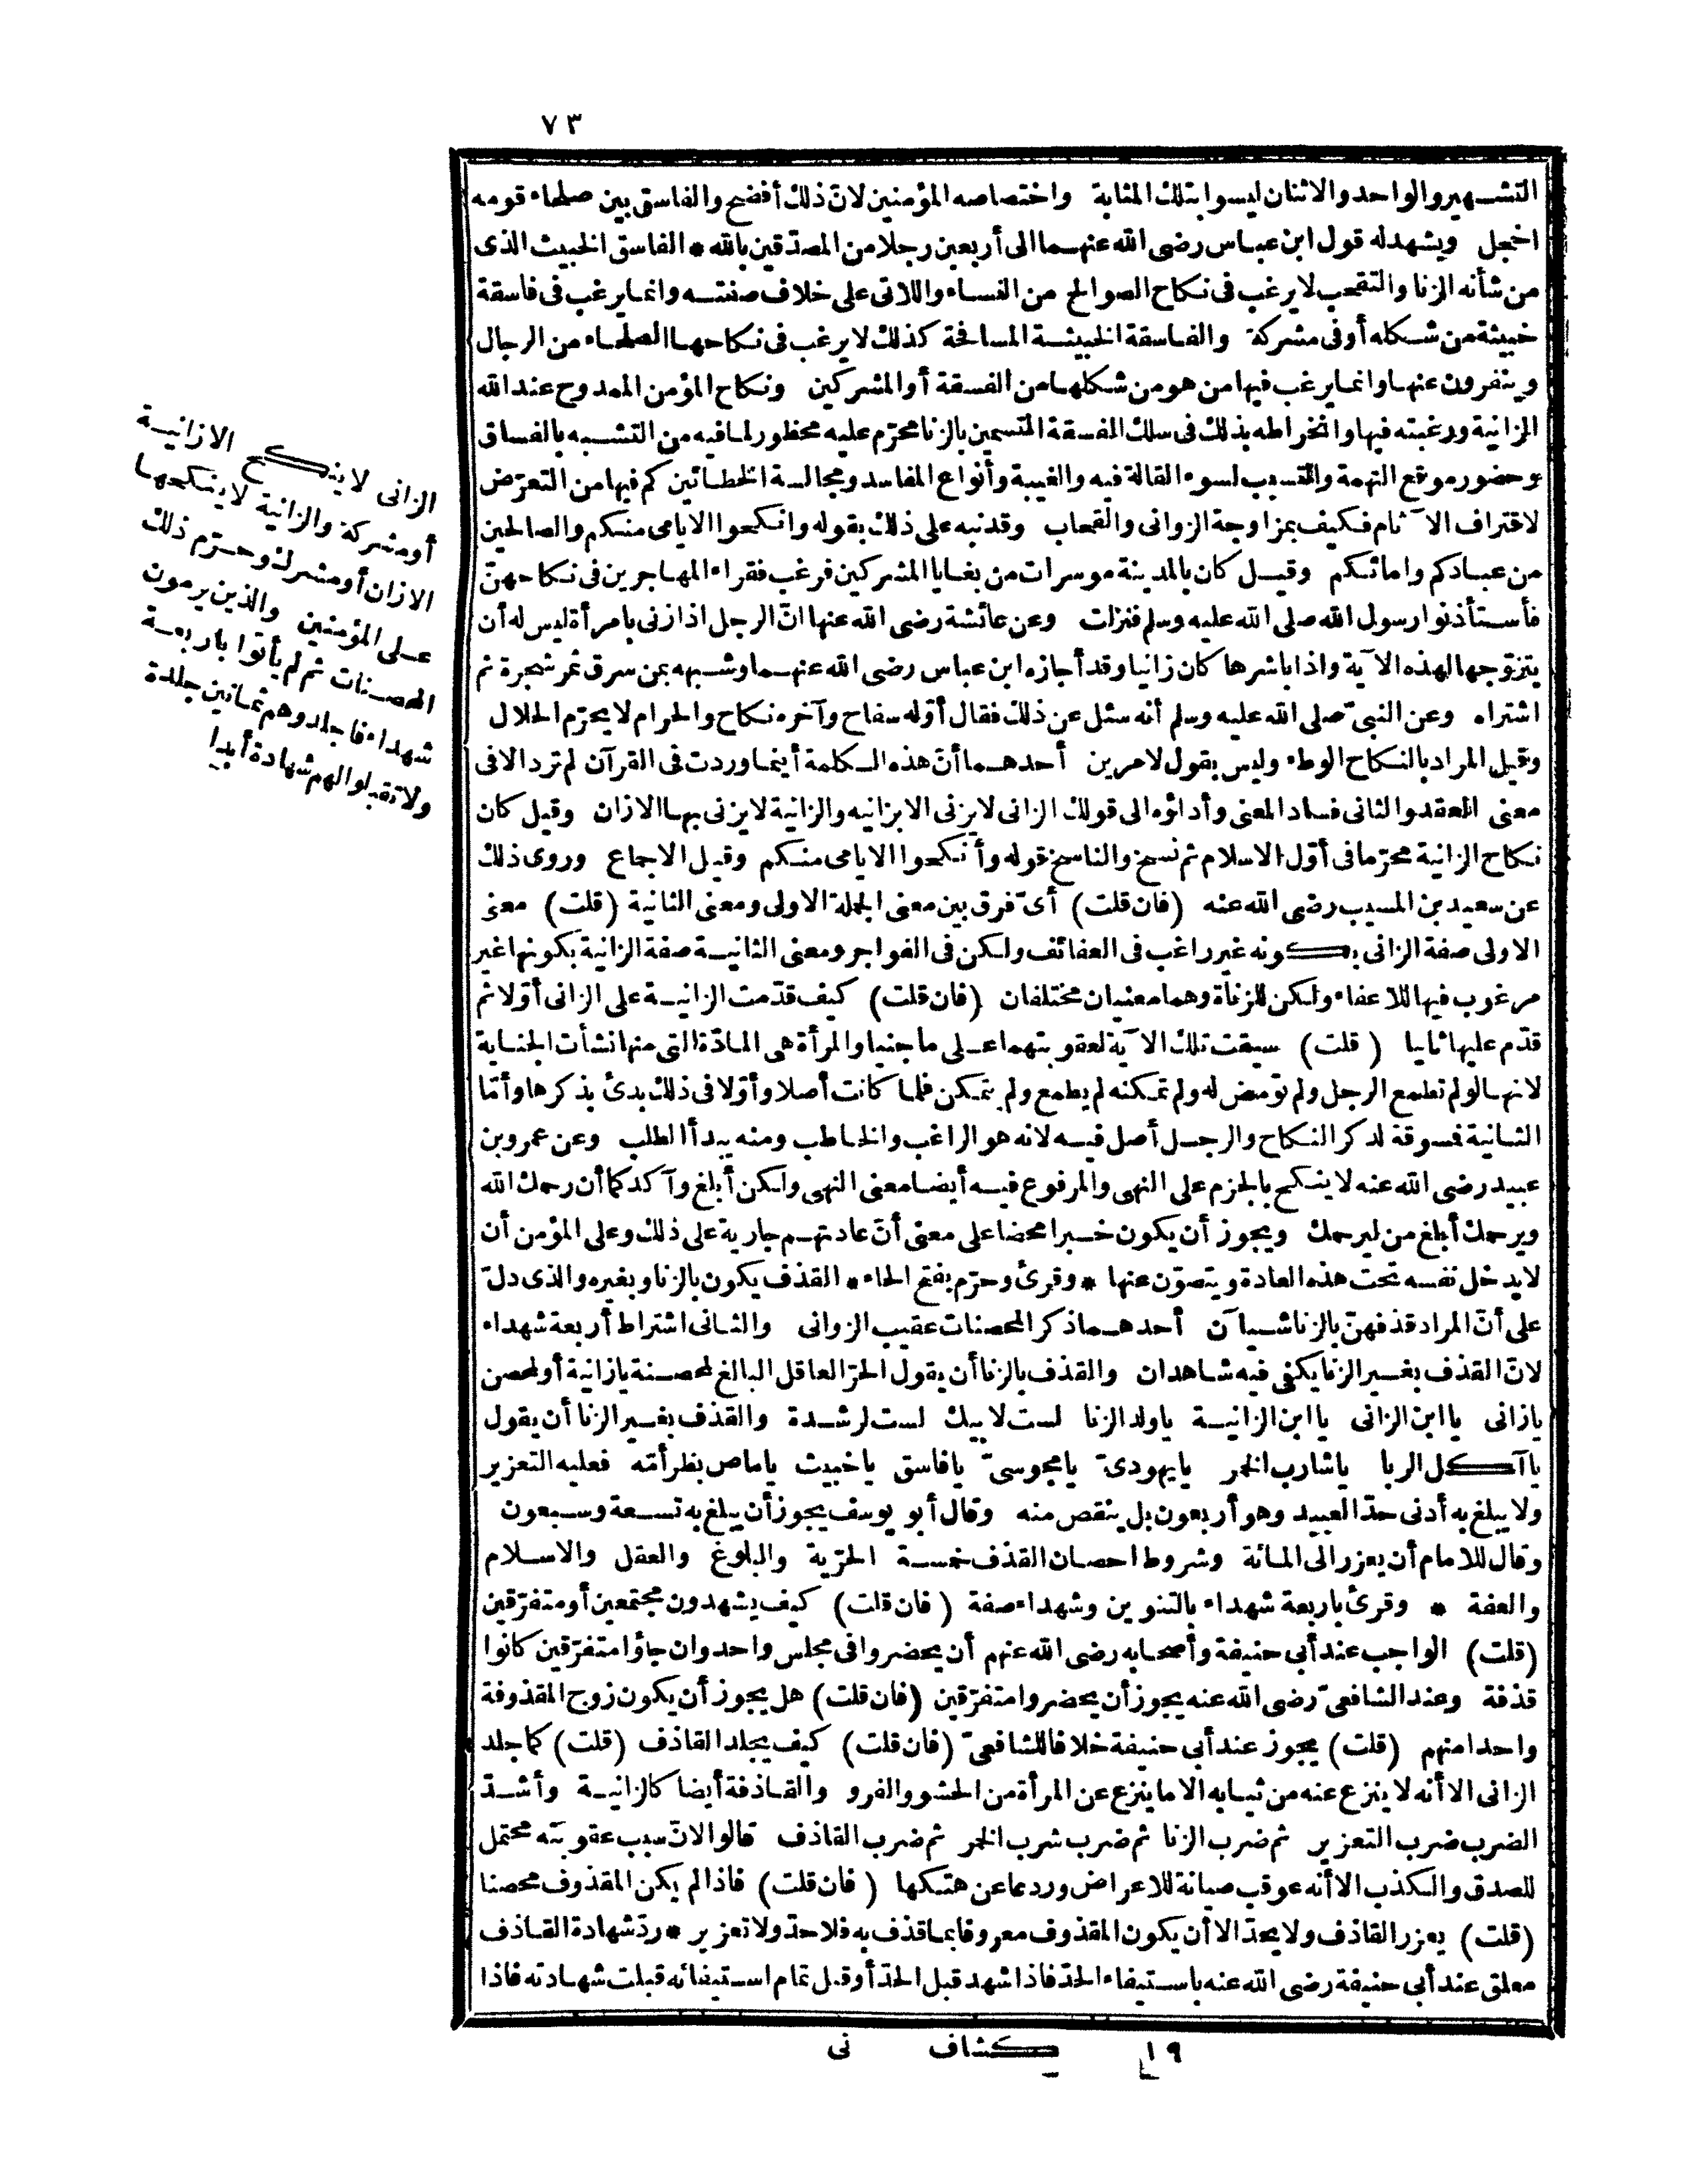 ٧٣
التشهير والواحد والاثنان ليسوا بتلك المثابة واختصاصه المؤمنين لانّ ذلك أفضح والفاسق بين صلحاء قومه
اخجل ويشهد له قول ابن عباس رضى الله عنهما الى أربعين رجلا من المصدّقين بالله * الفاسق الخبيث الذى
من شأنه الزنا والتقحب لا يرغب فى نكاح الصوالح من النساء واللاتى على خلاف صفته وانما يرغب فى فاسقة
خبيثة من شكله أو فى مشركة والفاسقة الخبيثة المسافحة كذلك لا يرغب فى نكاحها الصلحاء من الرجال
وينفرون عنها وانما يرغب فيها من هو من شكلها من الفسقة أو المشركين ونكاح المؤمن الممدوح عند الله
الزانية ورغبته فيها وانخراطه بذلك فى سلك الفسقة المتسمين بالزنا محرّم عليه محظور لما فيه من التشبه بالفساق
وحضور موقع التهمة والتسبب لسوء القالة فيه والغيبة وأنواع المفاسد ومجالسة الخطائين كم فيها من التعرّض
لاقتراف الآثام فكيف بمزاوجة الزوانى والقحاب وقد نبه على ذلك بقوله وانكحوا الايامى منكم والصالحين
من عبادكم وامائكم وقيل كان بالمدينة موسرات من بغايا المشركين فرغب فقراء المهاجرين فى نكاحهنّ
فأستأذنوا رسول الله صلى الله عليه وسلم فنزلت وعن عائشة رضى الله عنها انّ الرجل اذا زنى بامرأة ليس له أن
يتزوّجها لهذه الآية واذا باشرها كان زانيا وقد أجازه ابن عباس رضى الله عنهما وشبهه بمن سرق ثمر شجرة ثم
اشتراه وعن النبىّ صلى الله عليه وسلم أنه سئل عن ذلك فقال أوّله سفاح وآخره نكاح والحرام لا يحرّم الحلال
وقيل المراد بالنكاح الوطء وليس بقول لامرين أحدهما أنّ هذه الكلمة أينما وردت فى القرآن لم ترد الا فى
معنى العقد والثانى فساد المعنى وأداؤه الى قولك الزانى لا يزنى الا بزانيه والزانية لا يزنى بها الا زان وقيل كان
نكاح الزانية محرّما فى أوّل الاسلام ثم نسخ والناسخ قوله وأنكحوا الايامى منكم وقيل الاجماع وروى ذلك
عن سعيد بن المسيب رضى الله عنه (فان قلت) أىّ فرق بين معنى الجملة الاولى ومعنى الثانية (قلت) معنى
الاولى صفة الزانى بكونه غير راغب فى العفائف ولكن فى الفواجر ومعنى الثانية صفة الزانية بكونها غير
مرغوب فيها للاعفاء ولكن للزناة وهما معنيان مختلفان (فان قلت) كيف قدّمت الزانية على الزانى أوّلا ثم
قدّم عليها ثانيا (قلت) سيقت تلك الآية لعقوبتهما على ما جنيا والمرأة هى المادّة التى منها نشأت الجناية
لانها لو لم تطمع الرجل ولم تومض له ولم تمكنه لم يطمع ولم يتمكن فلما كانت أصلا وأوّلا فى ذلك بدئ بذكرها وأمّا
الثانية فسوقة لذكر النكاح والرجل أصل فيه لانه هو الراغب والخاطب ومنه يبدأ الطلب وعن عمرو بن
عبيد رضى الله عنه لا ينكح بالجزم على النهى والمرفوع فيه أيضا معنى النهى ولكن أبلغ وآكد كما أن رحمك الله
ويرحمك أبلغ من ليرحمك ويجوز أن يكون خبرا محضا على معنى أنّ عادتهم جارية على ذلك وعلى المؤمن أن
لا يدخل نفسه تحت هذه العادة ويتصوّن عنها * وقرئ وحرّم بفتح الحاء * القذف يكون بالزنا وبغيره والذى دلّ
على أنّ المراد قذفهنّ بالزنا شيآن أحدهما ذكر المحصنات عقيب الزوانى والثانى اشتراط أربعة شهداء
لانّ القذف بغير الزنا يكفى فيه شاهدان والقذف بالزنا أن يقول الحرّ العاقل البالغ لمحصنة يا زانية أو لمحصن
يا زانى يا ابن الزانى يا ابن الزانية يا ولد الزنا لست لابيك لست لرشدة والقذف بغير الزنا أن يقول
يا آكل الربا يا شارب الخمر يا يهودىّ يا مجوسىّ يا فاسق يا خبيث يا ماص بظر أمّه فعليه التعزير
ولا يبلغ به أدنى حدّ العبيد وهو أربعون بل ينقص منه وقال أبو يوسف يجوز أن يبلغ به تسعة وسبعون
وقال للامام أن يعزر الى المائة وشروط احصان القذف خمسة الحرّية والبلوغ والعقل والاسلام
والعفة * وقرئ باربعة شهداء بالتنوين وشهداء صفة (فان قلت) كيف يشهدون مجتمعين أو متفرّقين
(قلت) الواجب عند أبى حنيفة وأصحابه رضى الله عنهم أن يحضروا فى مجلس واحد وان جاؤا متفرّقين كانوا
قذفة وعند الشافعىّ رضى الله عنه يجوز أن يحضروا متفرّقين (فان قلت) هل يجوز أن يكون زوج المقذوفة
واحدا منهم (قلت) يجوز عند أبى حنيفة خلافا للشافعىّ (فان قلت) كيف يجلد القاذف (قلت) كما جلد
الزانى الا أنه لا ينزع عنه من ثيابه الا ما ينزع عن المرأة من الحشو والفرو والقاذفة أيضا كالزانية وأشدّ
الضرب ضرب التعزير ثم ضرب الزنا ثم ضرب شرب الخمر ثم ضرب القاذف قالوا لانّ سبب عقوبته محتمل
للصدق والكذب الا أنه عوقب صيانة للاعراض وردعا عن هتكها (فان قلت) فاذا لم يكن المقذوف محصنا
(قلت) يعزر القاذف ولا يحدّ الا أن يكون المقذوف معروفا بما قذف به فلا حدّ ولا تعزير * ردّ شهادة القاذف
معلق عند أبى حنيفة رضى الله عنه باستيفاء الحدّ فاذا شهد قبل الحدّ أو قبل تمام استيفائه قبلت شهادته فاذا
الزانى لا ينكح الا زانية
أو مشركة والزانية لا ينكحها
الا زان أو مشرك وحرّم ذلك
على المؤمنين والذين يرمون
المحصنات ثم لم يأتوا باربعة
شهداء فاجلدوهم ثمانين جلدة
ولا تقبلوا لهم شهادة أبدا
١٩ كشاف نى